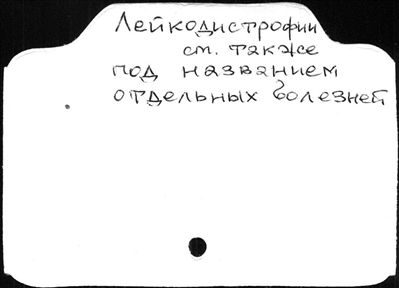 Лейкодистрофии
см. также
под названием
отдельных болезней